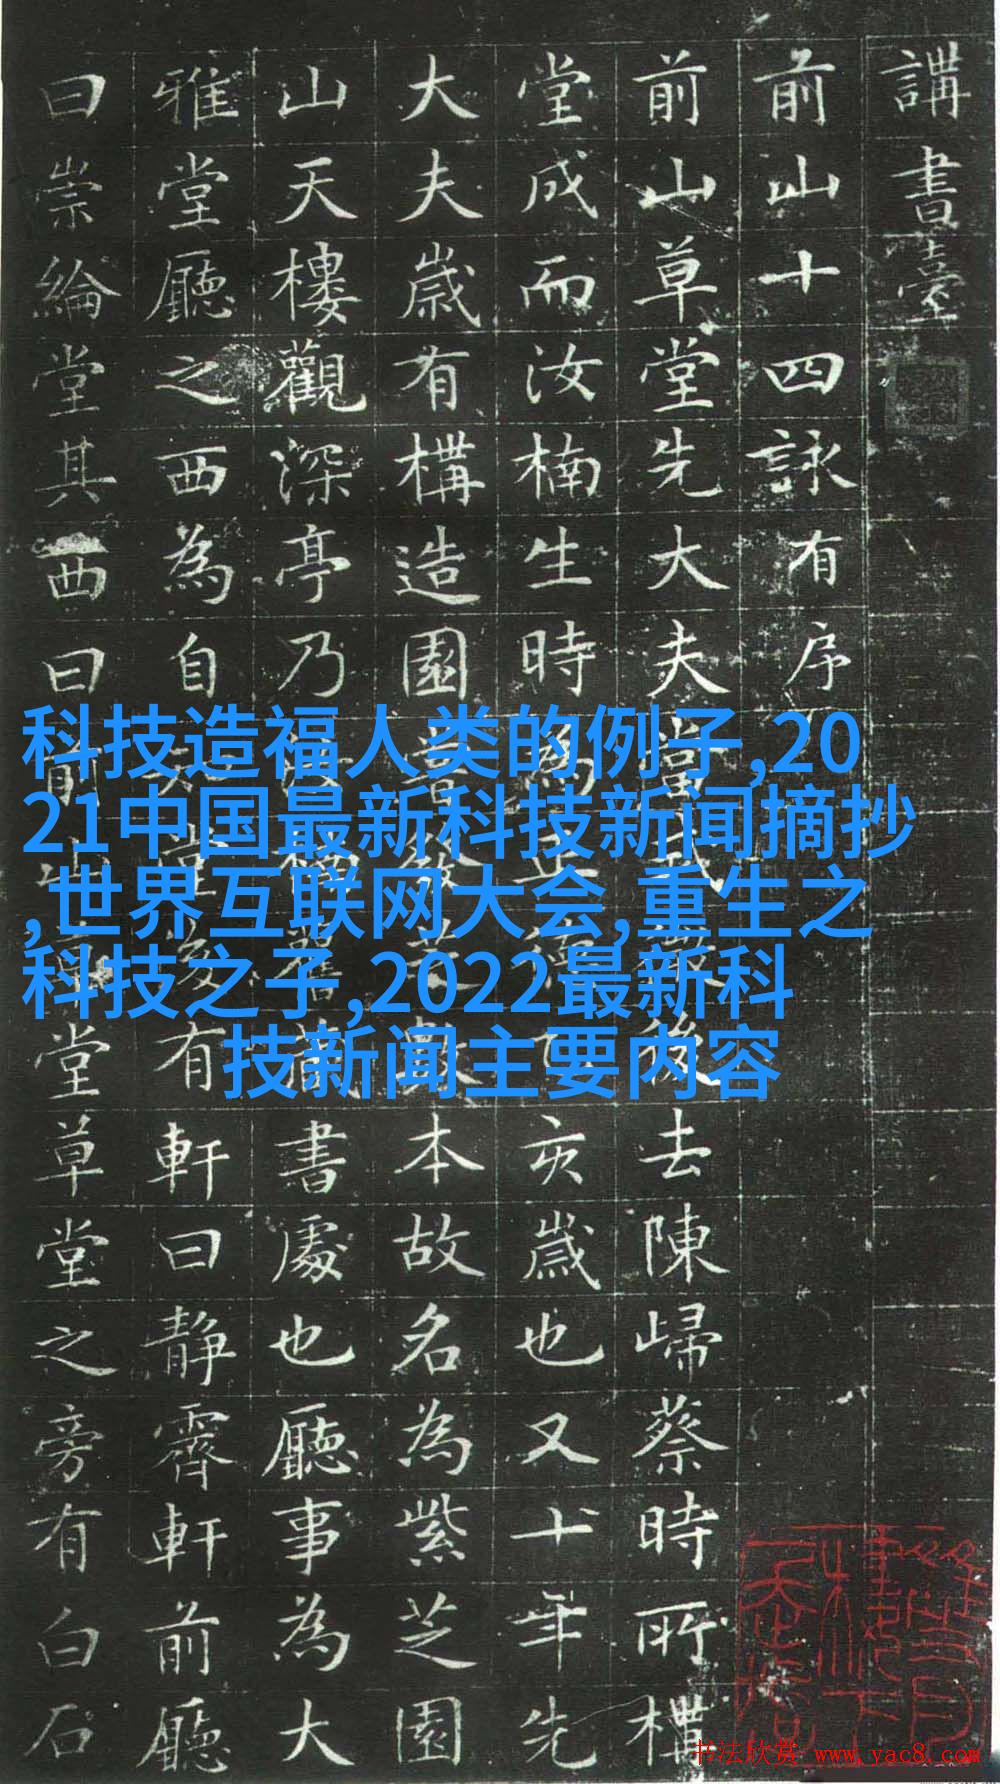 講書臺
前山十四詠有序
前山草堂先大夫後去陳歸蔡時所構
堂成而汝楠生時為亥歲也又十年先
大夫歲有構造園本故名為紫芝園
山天樓觀深亭乃書處也廳事為大
雅堂廳之西為自有軒曰靜霽軒前廳
曰崇綸堂其西曰前山草堂草堂之旁有白石
科技造福人类的例子,20
21中国最新科技新闻摘抄
,世界互联网大会,重生之
科技之子,2022最新科
技新闻主要内容
书法欣赏 www.yac8.com